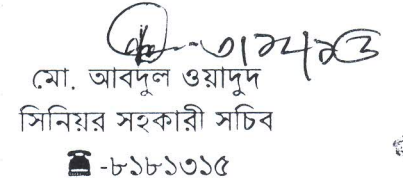 মো. আবদুল ওয়াদুদ
সিনিয়র সহকারী সচিব
☎-৮১৮১৩১৫